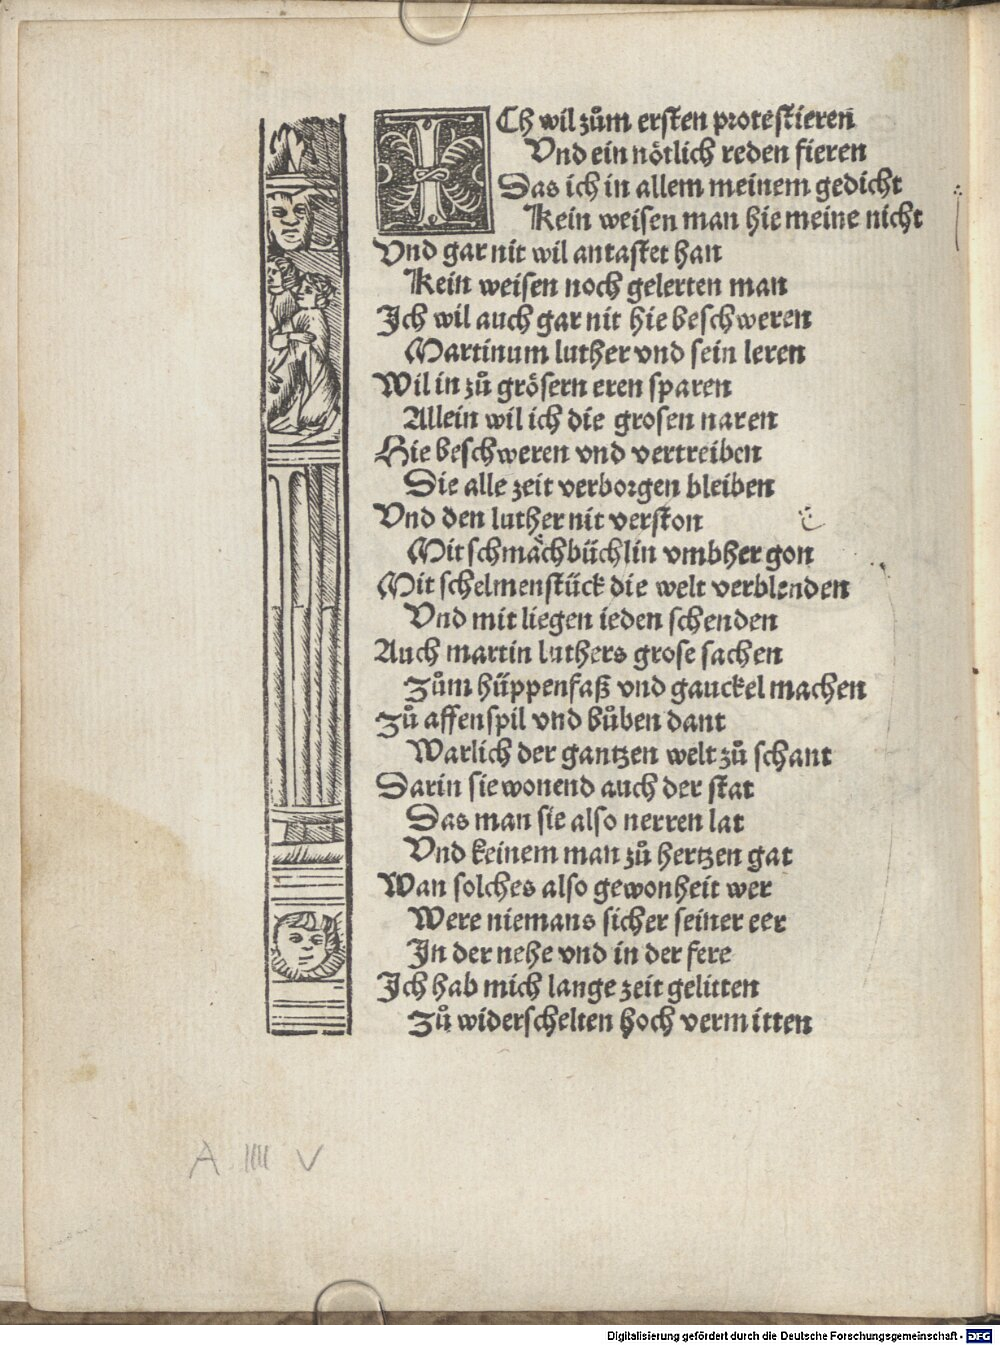 ICh wil zům ersten protestieren
Vnd ein nötlich reden fieren
Das ich in allem meinem gedicht
Kein weisen man hie meine nicht
Vnd gar nit wil antastet han
Kein weisen noch gelerten man
Ich wil auch gar nit hie beschweren
Martinum luther vnd sein leren
Wil in zů grösern eren sparen
Allein wil ich die grosen naren
Hie beschweren vnd vertreiben
Die alle zeit verborgen bleiben
Vnd den luther nit verston
Mit schmåchbüchlin vmbher gon
Mit schelmenstück die welt verblenden
Vnd mit liegen ieden schenden
Auch martin luthers grose sachen
Zům hüppenfaß vnd gauckel machen
Zů affenspil vnd bůben dant
Warlich der gantzen welt zů schant
Darin sie wonend auch der stat
Das man sie also nerren lat
Vnd keinem man zů hertzen gat
Wan solches also gewonheit wer
Were niemans sicher seiner eer
In der nehe vnd in der fere
Ich hab mich lange zeit gelitten
Zů widerschelten hoch vermitten
A IIII V
Digitalisierung gefördert durch die Deutsche Forschungsgemeinschaft - DFG